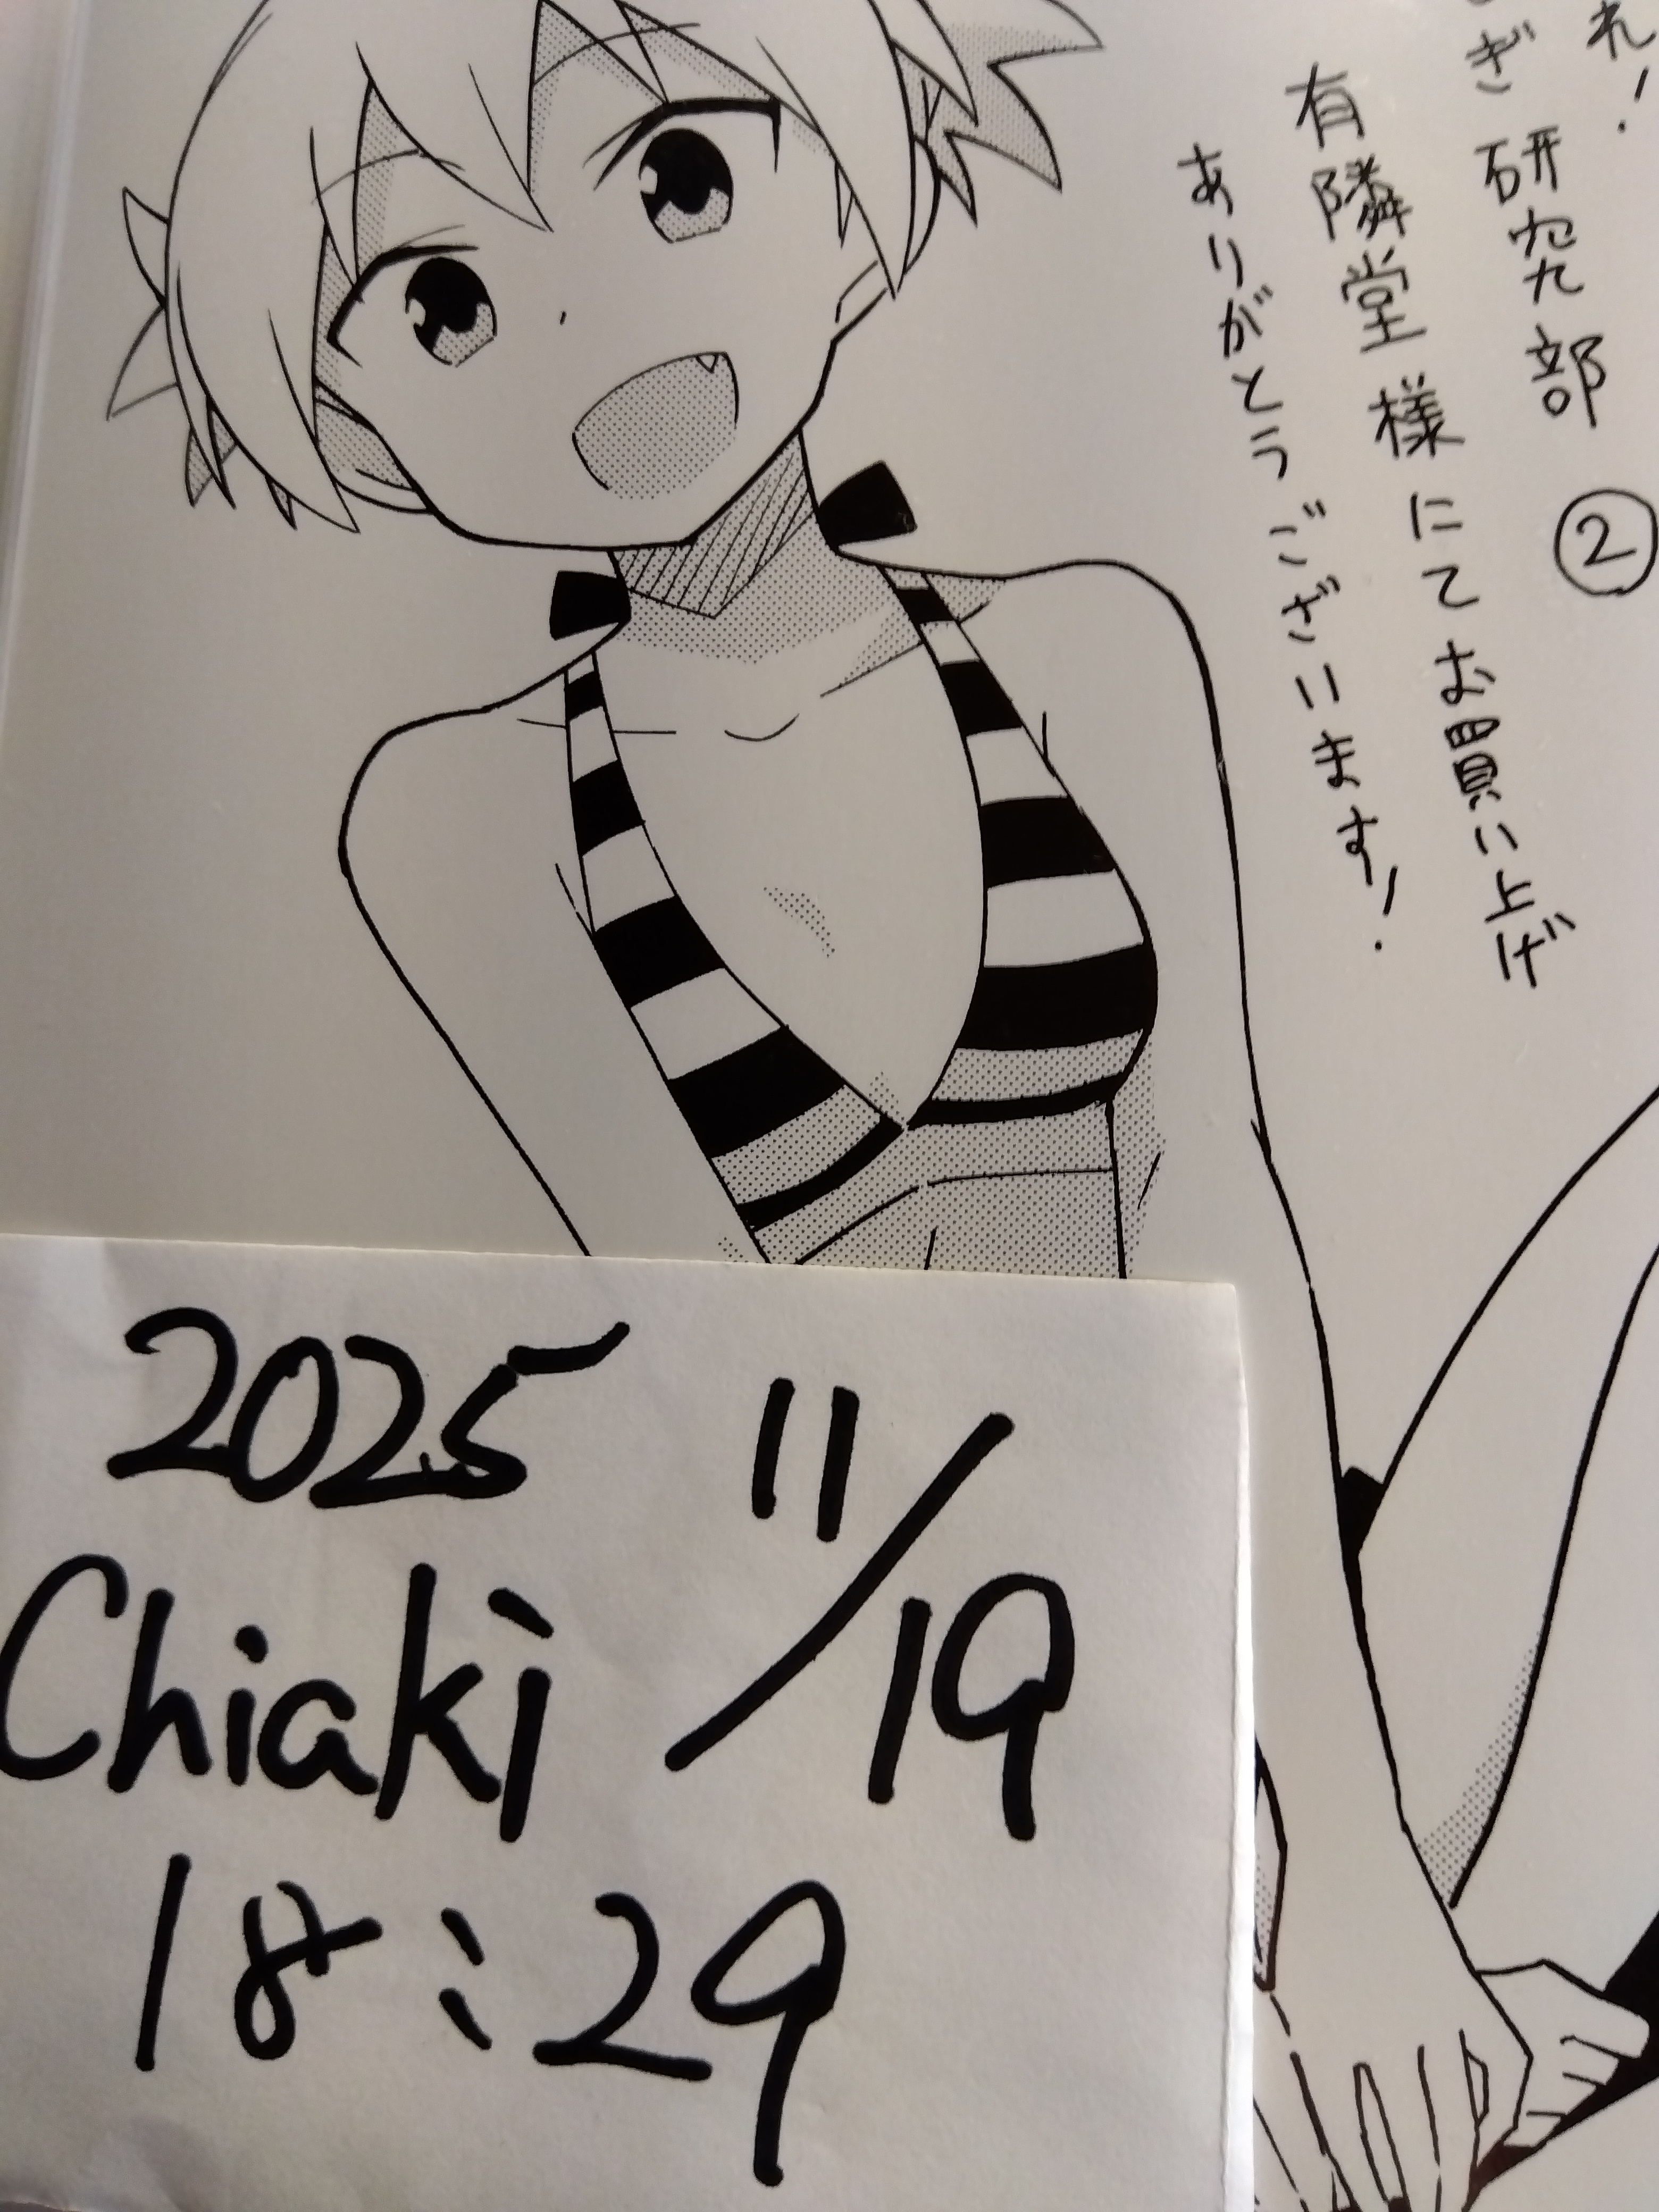 れ!
ぎ研究部②
有隣堂様にてお買い上げ
ありがとうございます!
2025 11/19
Chiaki
18:29